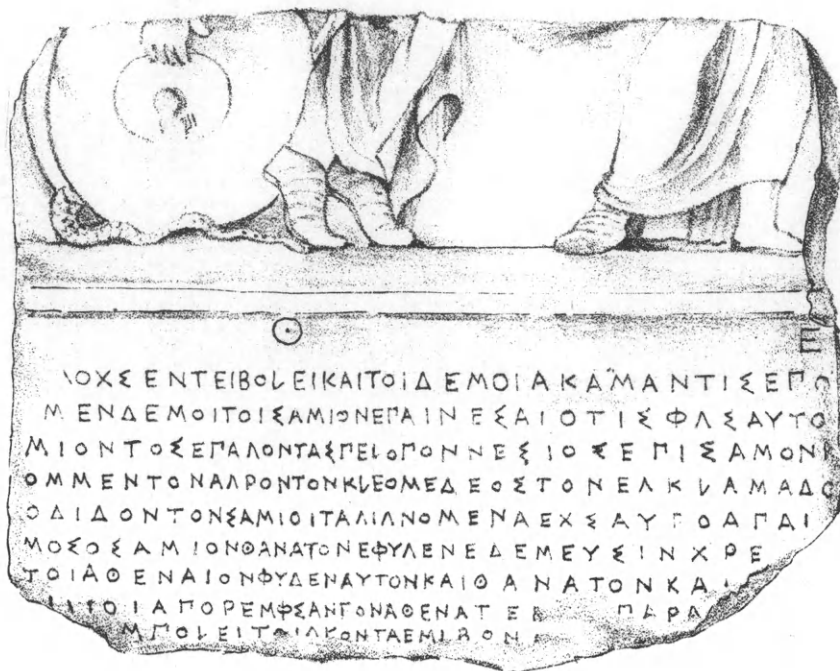 Θ Ε
ΛΟΧΣΕΝΤΕΙΒΟLΕΙΚΑΙΤΟΙΔΕΜΟΙΑΚΑΜΑΝΤΙΣΕΠΟ
ΜΕΝΔΕΜΟΙΤΟΙΣΑΜΙΟΝΕΠΑΙΝΕΣΑΙΟΤΙΣΦΛΣΑΥΤΟ
ΜΙΟΝΤΟΣΕΠΑΛΟΝΤΑΣΠΕLΟΠΟΝΝΕΣΙΟΣΕΠΙΣΑΜΟΝΚ
ΟΜΜΕΝΤΟΝΑΛΡΟΝΤΟΝΚLΕΟΜΕΔΕΟΣΤΟΝΕΛΚLΑΜΑΔΟ
ΟΔΙΔΟΝΤΟΝΣΑΜΙΟΙΤΑΛΙΛΝΟΜΕΝΑΕΧΣΑΥΓΟΑΠΑΙ
ΜΟΣΟΣΑΜΙΟΝΘΑΝΑΤΟΝΕΦΥΛΕΝΕΔΕΜΕΥΣΙΝΧΡΕ
ΤΟΙΑΘΕΝΑΙΟΝΦΥΔΕΝΑΥΤΟΝΚΑΙΘΑΝΑΤΟΝΚΑ
ΤΟΙΑΠΟΡΕΜΦΣΑΝΓΟΝΑΘΕΝΑΤΕ ΠΑΡΑ
ΜΠΟLΕΙΤΟΙΛΚΟΝΤΑΕΜΙΒΟΝ